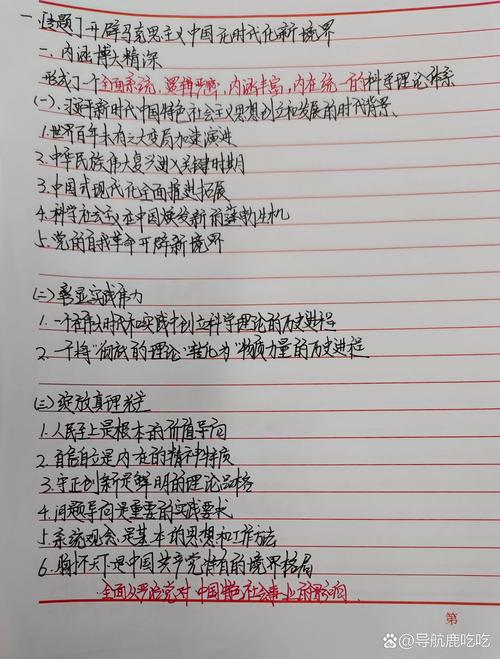 一、[专题]开辟马克思主义中国化时代化新境界
二、内涵博大精深
形成了一个全面系统，逻辑严密，内涵丰富，内在统一的科学理论体系
(一)、习近平新时代中国特色社会主义思想创立和发展的时代背景、
1.世界百年未有之大变局加速演进
2.中华民族伟大复兴进入关键时期
3.中国式现代化全面推进拓展
4.科学社会主义在中国焕发新的蓬勃生机
5.党的自我革命开辟新境界
(二)彰显实践伟力
1.一个在伟大时代和实践中创立科学理论的历史进程
2.一个将"彻底的理论"转化为"物质力量的历史进程
(三)绽放真理光芒
1.人民至上是根本的价值导向
2.自信自立是内在的精神特质
3.守正创新是鲜明的理论品格
4.问题导向是重要的实践要求
5.系统观念是基本的思想和工作方法
6.胸怀天下是中国共产党特有的境界格局
全面从严治党对中国特色社会事业的影响
第
@导航鹿吃吃